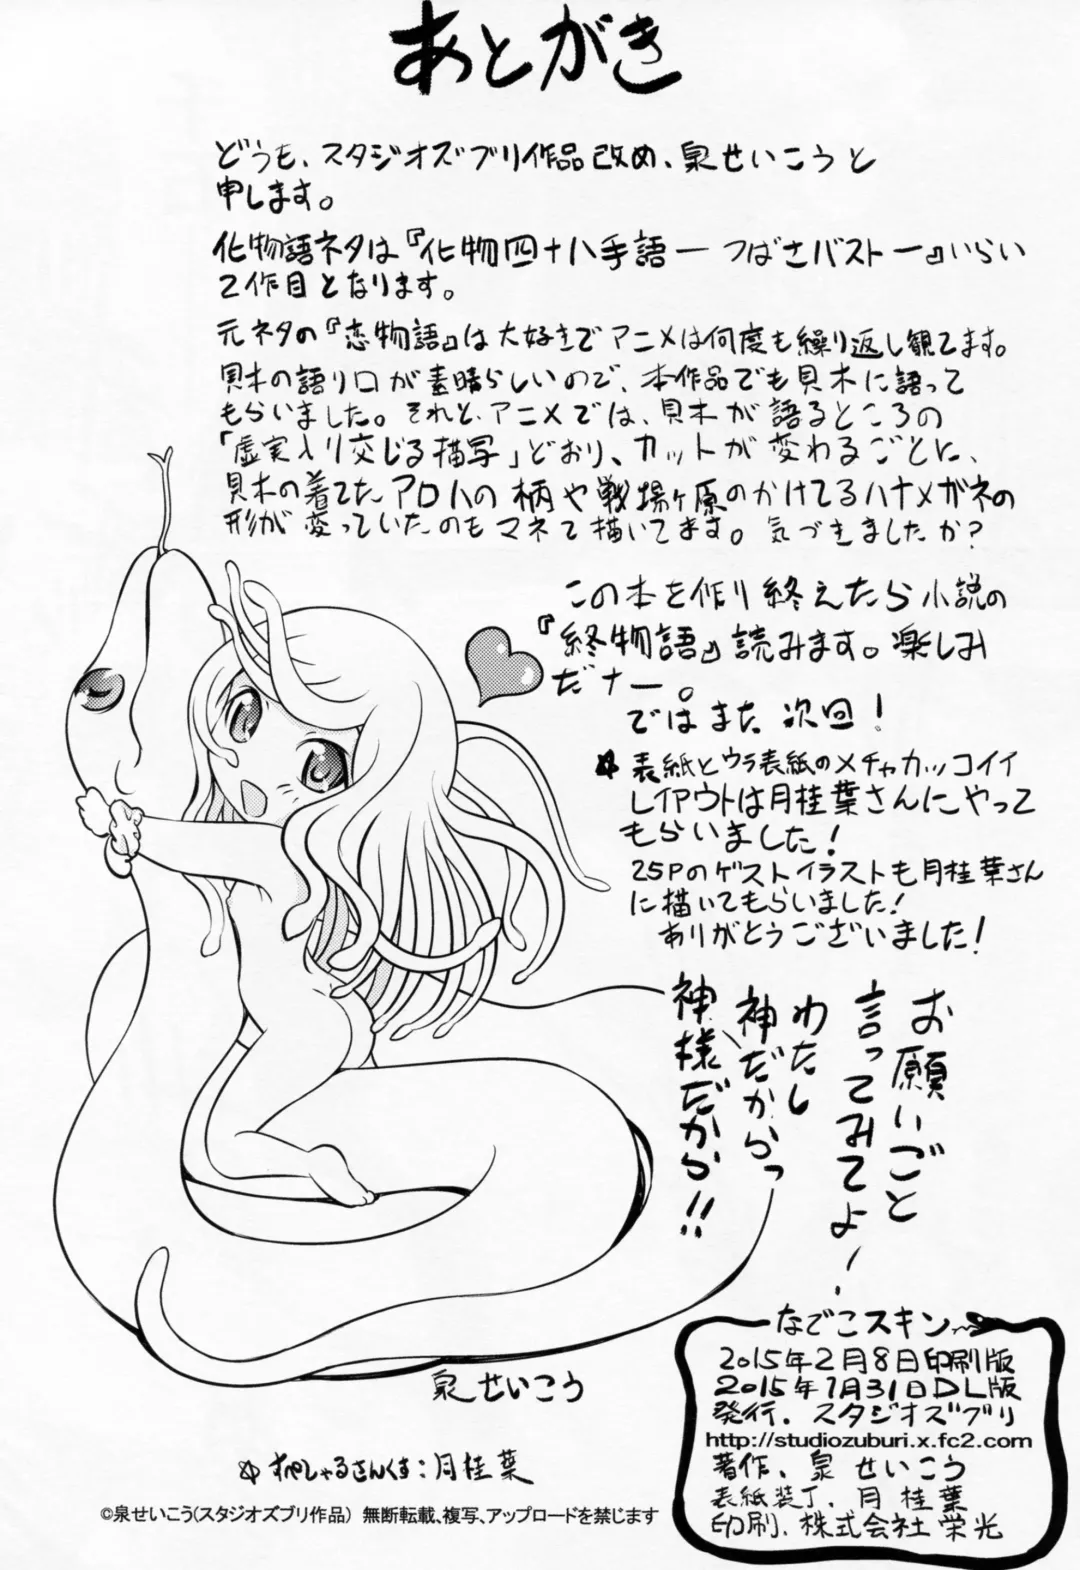 あとがき
どうも、スタジオズブリ作品改め、泉せいこうと
申します。
化物語ネタは『化物四十八手語―つばさバスト―』いらい
2作目となります。
元ネタの『恋物語』は大好きでアニメは何度も繰り返し観てます。
貝木の語り口が素晴らしいので、本作品でも貝木に語って
もらいました。それと、アニメでは、貝木が語るところの
「虚実入り交じる描写」どおり、カットが変わるごとに、
貝木の着てたアロハの柄や戦場ヶ原のかけてるハナメガネの
形が変っていたのもマネて描いてます。気づきましたか?
この本を作り終えたら小説の
『終物語』読みます。楽しみ
だナー。
ではまた次回!
☆表紙とウラ表紙のメチャカッコイイ
レイアウトは月桂葉さんにやって
もらいました!
25Pのゲストイラストも月桂葉さん
に描いてもらいました!
ありがとうございました!
お願いごと
言ってみてよ!
わたし
神だからっ
神様だから!!
泉せいこう
☆すぺしゃるさんくす:月桂葉
©泉せいこう(スタジオズブリ作品) 無断転載、複写、アップロードを禁じます
なでこスキン
2015年2月8日印刷版
2015年1月31日DL版
発行. スタジオズブリ
http://studiozuburi.x.fc2.com
著作、泉せいこう
表紙装丁. 月桂葉
印刷. 株式会社栄光